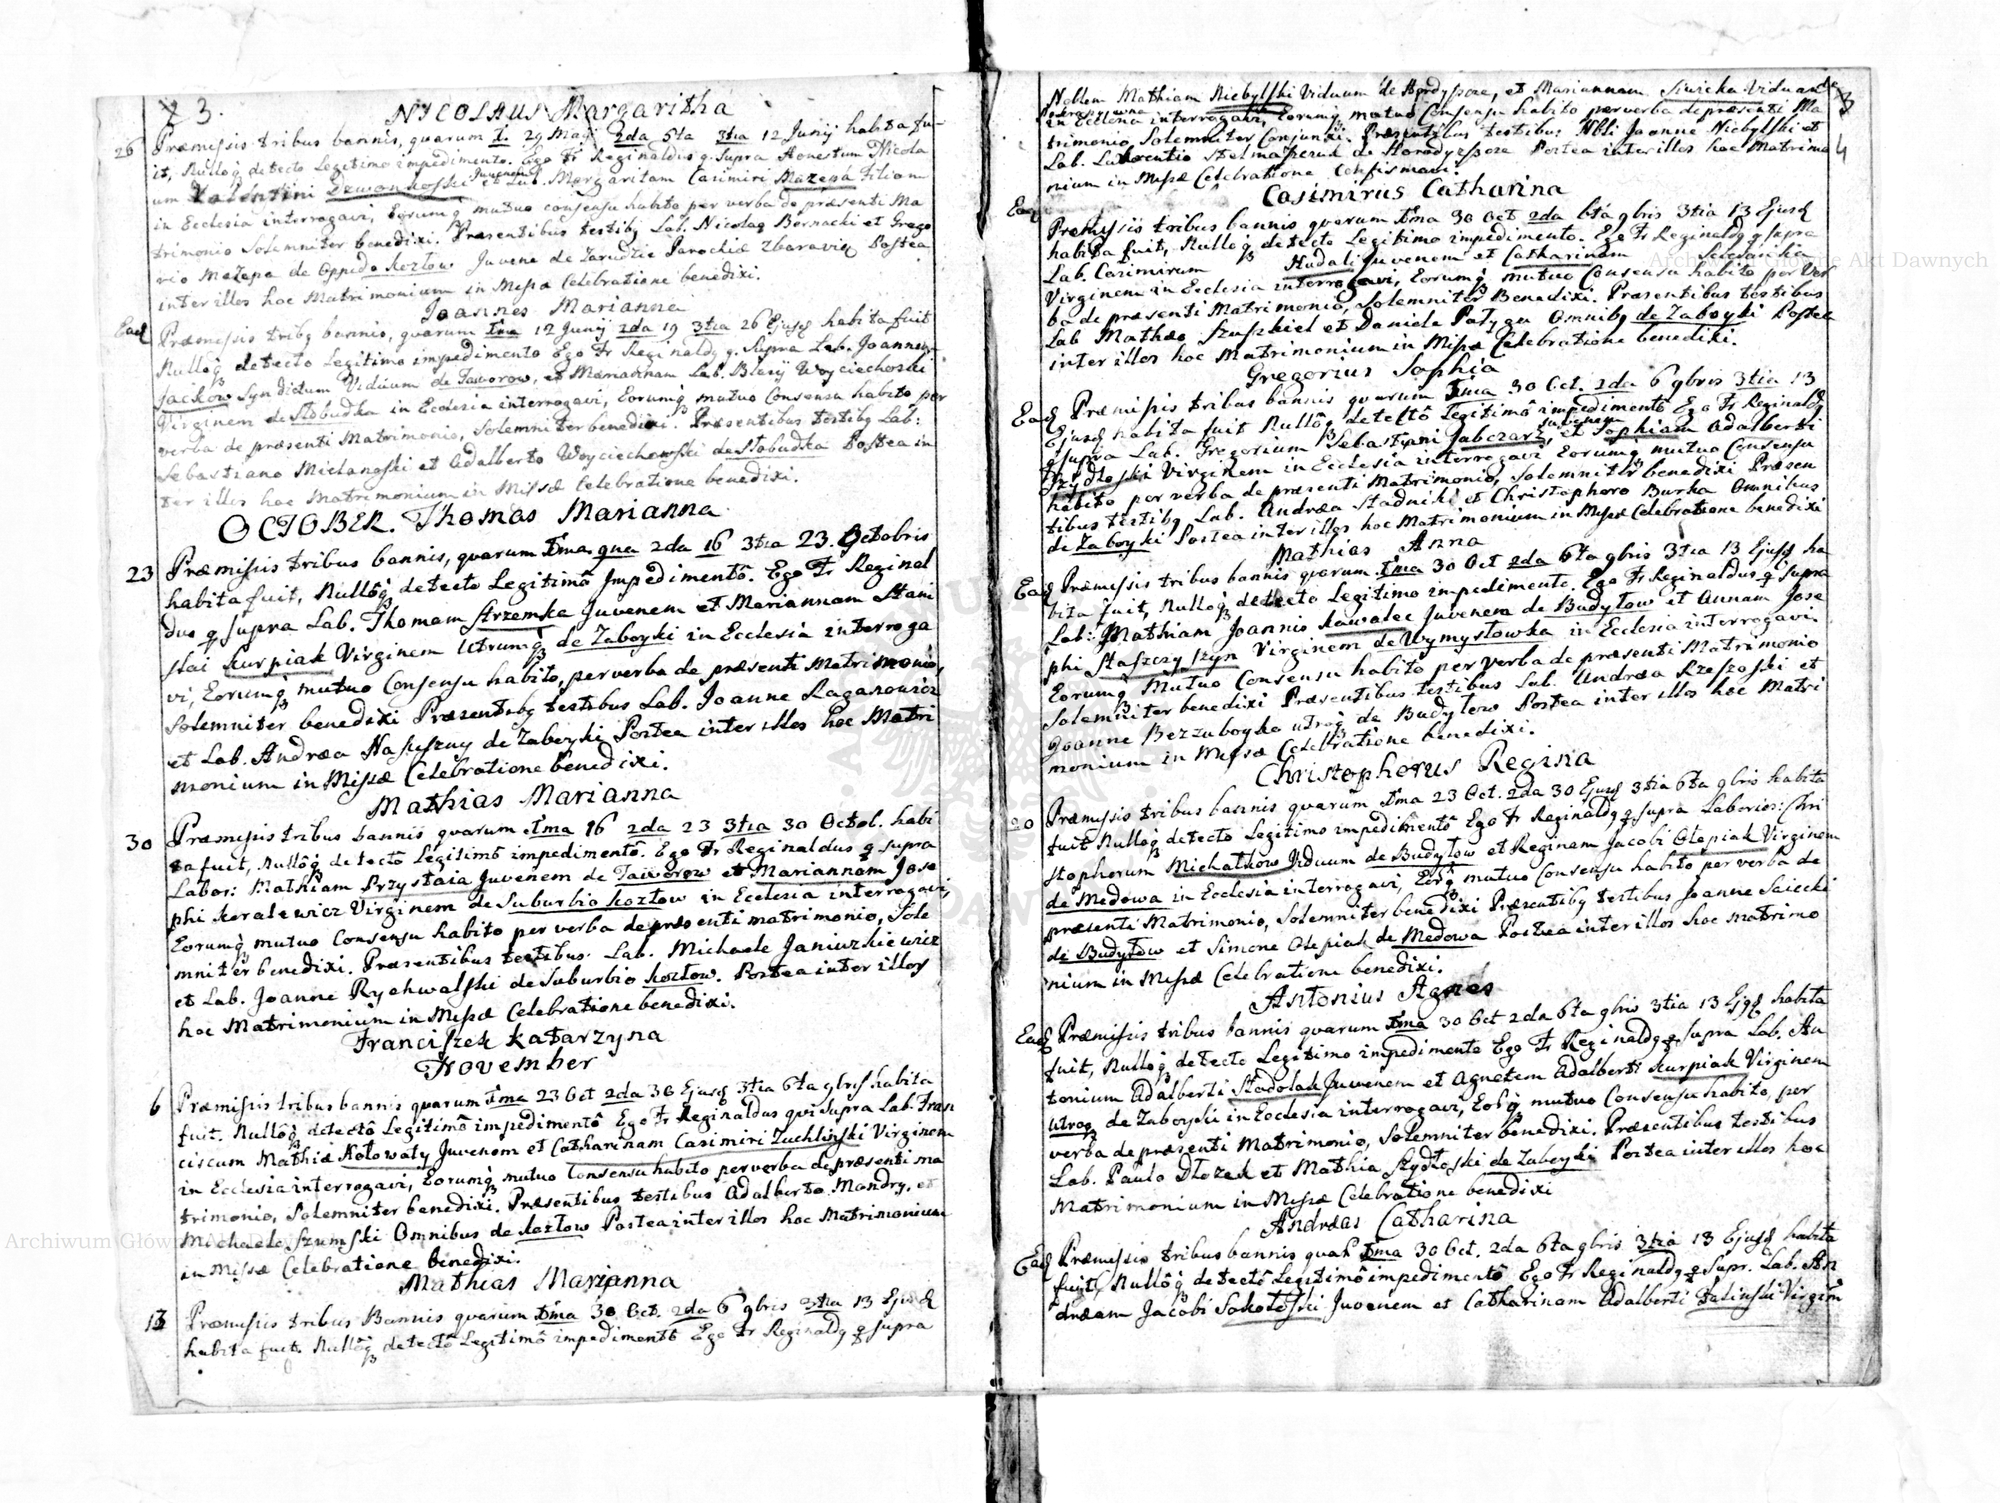 3.
NICOLAUS Margaritha
26 Præmissis tribus bannis, quarum I. 29 Maij 2da 5ta 3tia 12 Junij habita fu-
it, Nulloq detecto Legitimo impedimento. Ego Fr Reginaldus q. Supra Honestum Nicola
um Valentini Dzwonkoski Juvenem et Lab. Margaritam Casimiri Mazepa Filiam
in Ecclesia interrogavi, Eorumq mutuo consensu habito per verba de præsenti Ma
trimonio Solemniter benedixi. Præsentibus testibq Lab. Nicolao Bernacki et Grego
rio Mazepa de Oppido Kozłow Juvene de Zarudzie Parochiæ Zbaraviæ Postea
inter illos hoc Matrimonium in Missæ Celebratione benedixi.
Joannes Marianna
Ead Præmissis tribq bannis, quarum Ima 12 Junij 2da 19 3tia 26 Ejusq habita fuit
Nulloq detecto Legitimo impedimento Ego Fr Reginaldq q. Supra Lab. Joannem
Jackow Synditum Viduum de Jaworow, et Mariannam Lab. Blasij Woyciechoski
Virginem de Słobudka in Ecclesia interrogavi, Eorumq mutuo Consensu habito per
verba de præsenti Matrimonio, Solemniter benedixi. Præsentibus testibq Lab:
Sebastiano Michanoski et Adalberto Woyciechowski de Słobudka Postea in
ter illos hoc Matrimonium in Missæ Celebratione benedixi.
OCTOBER. Thomas Marianna
23 Præmissis tribus bannis, quarum Ima qua 2da 16 3tia 23. Octobris
habita fuit, Nulloq detecto Legitimô Impedimentô. Ego Fr Reginal
dus q supra Lab. Thomam Strzemka Juvenem et Mariannam Stani
slai Kurpiak Virginem Utrumq de Zaboyki in Ecclesia interroga
vi, Eorumq mutuo Consensu habito, per verba de præsenti Matrimonio,
Solemniter benedixi Præsentibq testibus Lab. Joanne Raganowicz
et Lab. Andræa Napyszny de Zaboyki Postea inter illos hoc Matri
monium in Missæ Celebratione benedixi.
Mathias Marianna
30 Præmissis tribus bannis quarum Ima 16 2da 23 3tia 30 Octob. habi
ta fuit, Nullôq detectô Legitimô impedimentô. Ego Fr Reginaldus q supra
Labor: Mathiam Przystaia Juvenem de Jaworow et Mariannam Jose
phi Keralewicz Virginem de Suburbio Kozłow in Ecclesia interrogavi,
Eorumq mutuo Consensu habito per verba de præsenti matrimonio, Sole
mniter benedixi. Præsentibus testibus Lab. Michaele Janiuzkiewicz
et Lab. Joanne Rychwalski de Suburbio Kozłow. Postea inter illos
hoc Matrimonium in Missæ Celebratione benedixi.
Franciszek Katarzyna
November
6 Præmissis tribus bannis quarum Ima 23 Oct 2da 30 Ejusq 3tia 6ta 9bris habita
fuit. Nullôq detectô Legitimô impedimentô Ego Fr Reginaldus qui Supra Lab. Fran
ciscum Mathiæ Kołowaty Juvenem et Catharinam Casimiri Zuchliński Virginem
in Ecclesia interrogavi, Eorumq mutuo Consensu habito per verba de præsenti ma
trimonio, Solemniter benedixi. Præsentibus testibus Adalberto Mandry, et
Michaele Szumski Omnibus de Kozłow Postea inter illos hoc Matrimonium
in Missæ Celebratione benedixi.
Mathias Marianna
13 Præmissis tribus Bannis quarum Ima 30 Oct. 2da 6 9bris 3tia 13 Ejusq
habita fuit. Nullôq detectô Legitimô impedimentô Ego Fr Reginaldq q supra
Noblem Mathiam Niebylski Viduum de Horodyszcze, et Mariannam Siwicka Viduam
in Ecclesia interrogavi, Eorumq mutuo Consensu habito per verba de præsenti Ma
trimonio, Solemniter Conjunxi. Præsentibus testibus Nbli Joanne Niebylski et
Lab. Laurentio Stelmaszczuk de Horodyszcze Postea inter illos hoc Matrimo
nium in Missæ Celebratione Confirmavi.
4
Casimirus Catharina
Ead Premissis tribus bannis quarum Ima 30 Oct 2da 6ta 9bris 3tia 13 Ejusq
habita fuit, Nulloq detecto Legitimo impedimento. Ego Fr Reginaldq q supra
Lab. Casimirum Hudali Juvenem et Catharinam
Virginem in Ecclesia interrogavi, Eorumq mutuo Consensu habito per Ver
ba de præsenti Matrimonio, Solemniter Benedixi. Præsentibus testibus
Lab Mathæo Szuszkiel et Daniele Patyga Omnibq de Zaboyki Postea
inter illos hoc Matrimonium in Missæ Celebratione benedixi.
Gregorius Sophia
Ead Præmissis tribus bannis quarum Ima 30 Oct. 2da 6 9bris 3tia 13
Ejusq habita fuit Nullôq detectô Legitimô impedimentô Ego Fr Reginaldq
q supra Lab. Gregorium Sebastiani Jabczarz, Juvenem et Sophiam Adalberti
Szydłoski Virginem in Ecclesia interrogavi Eorumq mutuo Consensu
habito per verba de præsenti Matrimonio, Solemniter benedixi Præsen
tibus testibq Lab. Andræa Stadnik et Christophoro Burka Omnibus
de Zaboyki Postea inter illos hoc Matrimonium in Missæ Celebratione benedixi
Mathias Anna
Ead Præmissis tribus bannis quarum Ima 30 Oct 2da 6ta 9bris 3tia 13 Ejusq ha
bita fuit, Nulloq detecto Legitimo impedimento. Ego Fr Reginaldus q supra
Lab: Mathiam Joannis Kawalec Juvenem de Budyłow et Annam Jose
phi Staszczyszyn Virginem de Wymysłowka in Ecclesia interrogavi
Eorumq Mutuo Consensu habito per verba de præsenti Matrimonio
Solemniter benedixi Præsentibus testibus Lab. Andræa Rzeszoski et
Joanne Bezzuboyka utroq de Budyłow Postea inter illos hoc Matri
monium in Missæ Celebratione benedixi.
Christophorus Regina
20 Præmissis tribus bannis quarum Ima 23 Oct. 2da 30 Ejusq 3tia 6ta 9bris habita
fuit Nulloq detecto Legitimo impedimentô Ego Fr Reginaldq q supra Laborios: Chri
stophorum Michałkow Viduum de Budyłow et Reginam Jacobi Olepiak Virginem
de Medowa in Ecclesia interrogavi, Eorq mutuo Consensu habito per verba de
præsenti Matrimonio, Solemniter benedixi Præsentibq testibus Joanne Saiecki
de Budyłow et Simone Olepiak de Medowa Postea inter illos hoc matrimo
nium in Missæ Celebratione benedixi.
Antonius Agnes
Ead Præmissis tribus bannis quarum Ima 30 Oct 2da 6ta 9bris 3tia 13 Ejsq habita
fuit, Nulloq detecto Legitimo impedimento Ego Fr Reginaldq q supra Lab. An
tonium Adalberti Stadolak Juvenem et Agnetem Adalberti Kurpiak Virginem
utroq de Zaboyki in Ecclesia interrogavi, Eorq mutuo Consensu habito, per
verba de præsenti Matrimonio, Solemniter benedixi. Præsentibus testibus
Lab. Paulo Dłozek et Mathia Szydłoski de Zaboyki Postea inter illos hoc
Matrimonium in Missæ Celebratione benedixi
Andræas Catharina
Ead Præmissis tribus bannis quar Ima 30 Oct. 2da 6ta 9bris 3tia 13 Ejusq habita
fuit, Nullôq detectô Legitimô impedimentô Ego Fr Reginaldq q Supr. Lab. An
dræam Jacobi Sokołoski Juvenem et Catharinam Adalberti Falinski Virginem
Archiwum Główne Akt Dawnych
Archiwum Główne Akt Dawnych